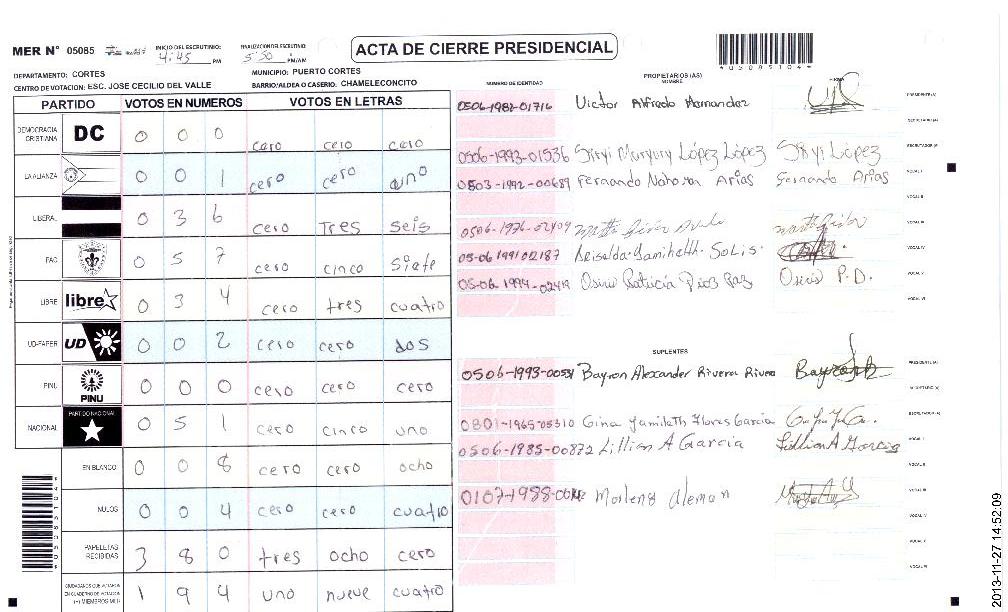 MER N° 05085
INICIO DEL ESCRUTINIO: 4:45 PM
FINALIZACION DEL ESCRUTINIO: 5:50 PM/AM
ACTA DE CIERRE PRESIDENCIAL
DEPARTAMENTO: CORTES
MUNICIPIO: PUERTO CORTES
CENTRO DE VOTACION: ESC. JOSE CECILIO DEL VALLE
BARRIO/ALDEA O CASERIO: CHAMELECONCITO
PARTIDO VOTOS EN NUMEROS VOTOS EN LETRAS
DEMOCRACIA CRISTIANA DC 0 0 0 cero cero cero
LA ALIANZA 0 0 1 cero cero uno
LIBERAL 0 3 6 cero Tres seis
PAC 0 5 7 cero cinco siete
LIBRE libre 0 3 4 cero tres cuatro
UD-FAPER UD 0 0 2 cero cero dos
PINU PINU 0 0 0 cero cero cero
NACIONAL PARTIDO NACIONAL 0 5 1 cero cinco uno
EN BLANCO 0 0 8 cero cero ocho
NULOS 0 0 4 cero cero cuatro
PAPELETAS RECIBIDAS 3 8 0 tres ocho cero
CIUDADANOS QUE VOTARON EN CUADERNO DE VOTACION 1 9 4 uno nueve cuatro
NUMERO DE IDENTIDAD PROPIETARIOS (AS) NOMBRE FIRMA
0506-1982-01716 Victor Alfredo Hernandez PRESIDENTE(A)
SECRETARIO(A)
0506-1993-01536 Siryi Maryury López López Siryi López ESCRUTADOR(A)
0503-1992-00689 Fernando Arias Fernando Arias VOCAL I
VOCAL II
0506-1976-02409 VOCAL III
05-06 1991 02187 Solis. VOCAL IV
05-06 1994-02419 Patricia Paz P.D. VOCAL V
VOCAL VI
SUPLENTES
0506-1993-00531 Bayron Alexander Rivera Rivera PRESIDENTE(A)
SECRETARIO(A)
0801-1965-05310 Gina Yamileth Flores Garcia ESCRUTADOR(A)
0506-1985-00872 Lillian A Garcia Lillian A Garcia VOCAL I
VOCAL II
0107-1988- Aleman VOCAL III
VOCAL IV
VOCAL V
VOCAL VI
2013-11-27 14:52:09